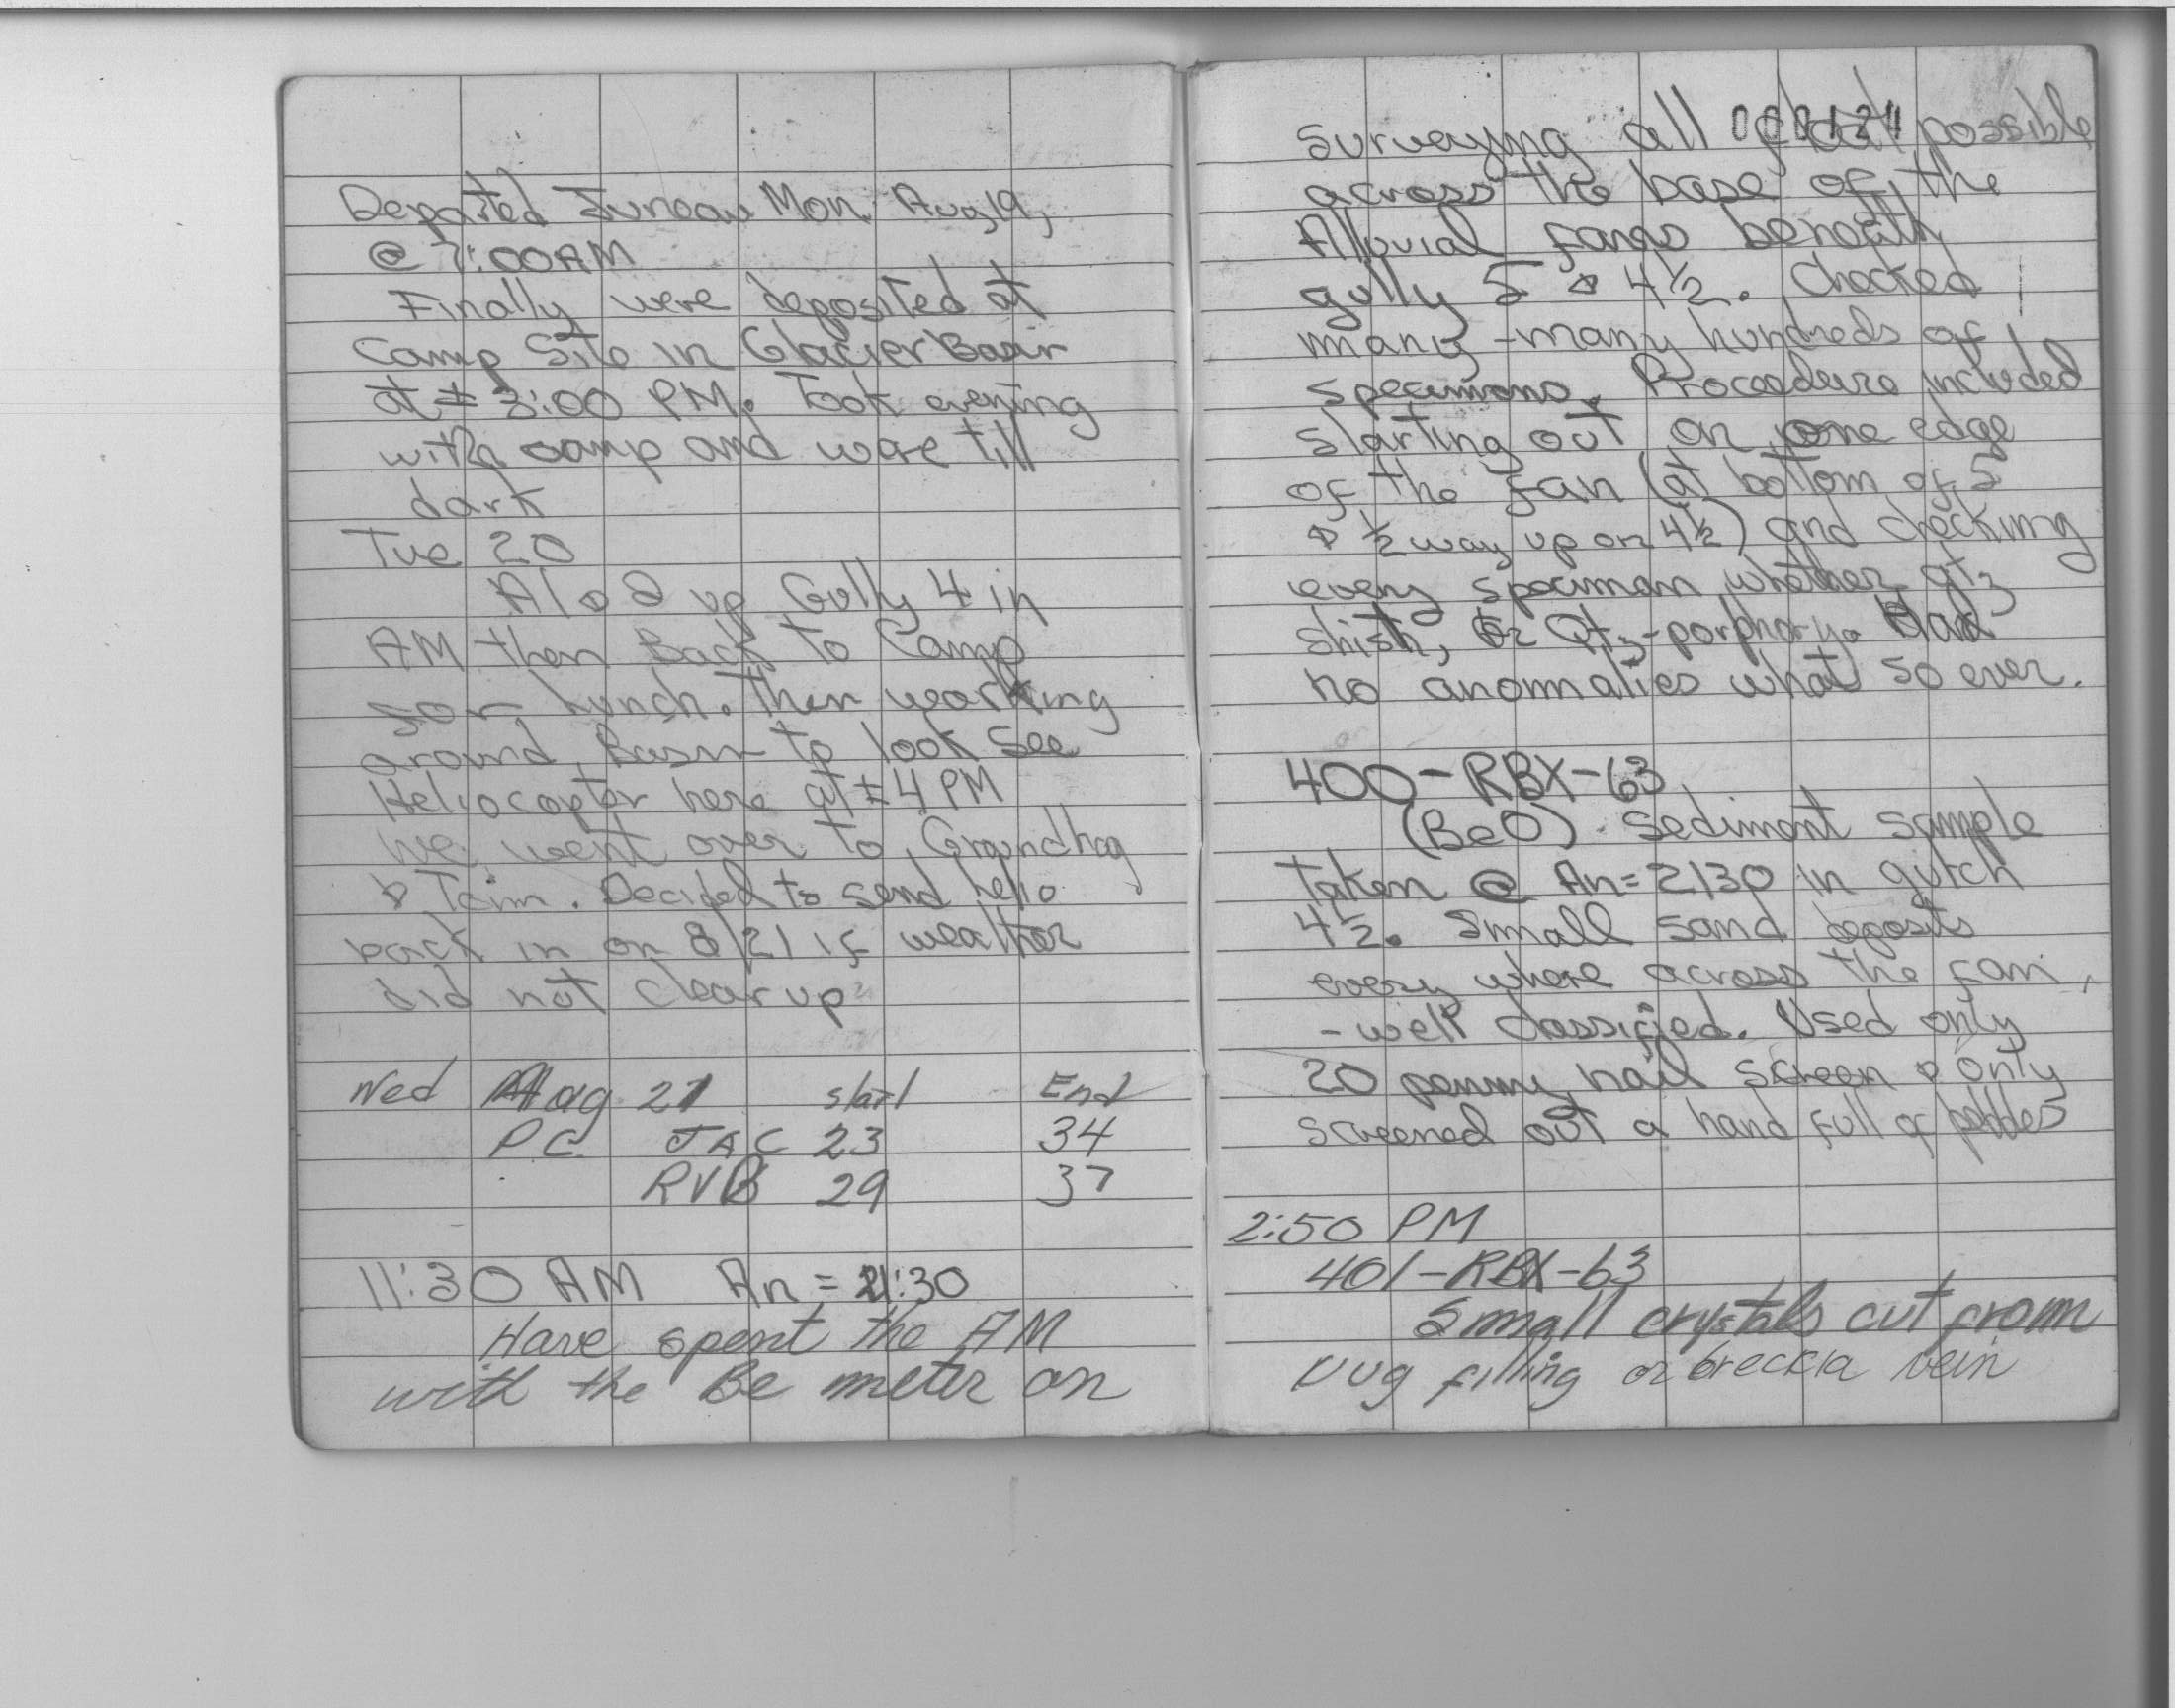 Departed Juneau Mon. Aug 19,
@ 7:00 AM
Finally were deposited at
Camp Site in Glacier Basin
at ± 3:00 PM. Took evening
with camp and were till
dark
Tue 20
Al & I up Gully 4 in
AM then Back to Camp
for Lunch. Then working
around Basin to look see
Heliocopter here at ± 4 PM
we went over to Groundhog
& Decided to send helio
back in on 8/21 if weather
did not clear up
Wed Aug 21 start End
PC JAC 23 34
RVB 29 37
11:30 AM An = 21:30
Have spent the AM
with the Be meter on
000124
surveying all float possible
across the base of the
Alluvial fans beneath
gully 5 & 4½. Checked
many - many hundreds of
specimens. Proceedure included
starting out on one edge
of the fan (at bottom of 5
& ½ way up on 4½) and checking
every speciman whether qtz
shist, or Qtz-porphory. Had
no anomalies what so ever.
400-RBX-63
(BeO) Sediment sample
taken @ An = 2130 in gutch
4½. Small sand deposits
every where across the fan,
- well classified. Used only
20 penny nail screen & only
screened out a hand full of pebbles
2:50 PM
401-RBX-63
Small crystals cut from
Vug filling or breckia vein